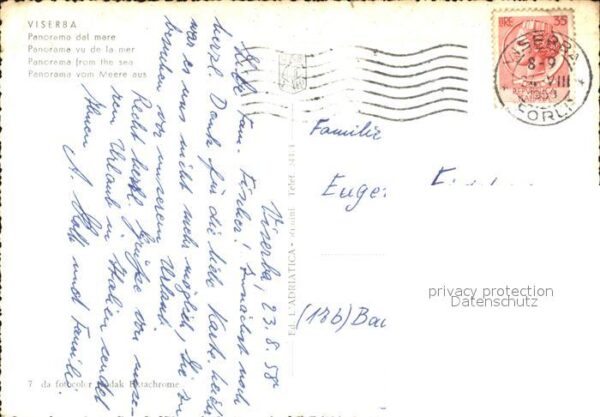 VISERBA
Panorama dal mare
Panorama vu de la mer
Panorama from the sea
Panorama vom Meere aus
LIRE 35
VISERBA
8-9
VIII
FORLI
Viserba, 23.8.58
Liebe Fam. Fischer! Zunächst noch
herzl. Dank für die liebe Karte. Leider
war es uns nicht mehr möglich, Sie zu
besuchen vor unserem Urlaub.
Recht herzl. Grüße von unse-
rem Urlaub in Italien sendet
Ihnen A. und Familie
Familie
Euge
(13b) Ba
Ed. L'ADRIATICA - Rimini Telef.
7 da fotocolor Kodak Ektachrome
privacy protection
Datenschutz